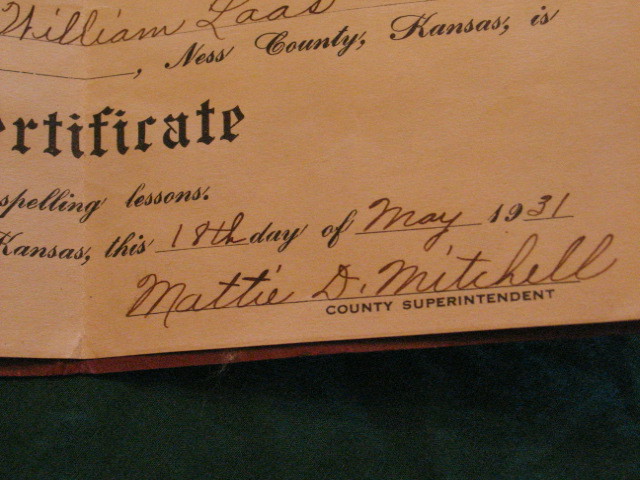 William Laas
, Ness County, Kansas, is
ertificate
spelling lessons.
Kansas, this 18th day of May 1931
Mattie D. Mitchell
COUNTY SUPERINTENDENT